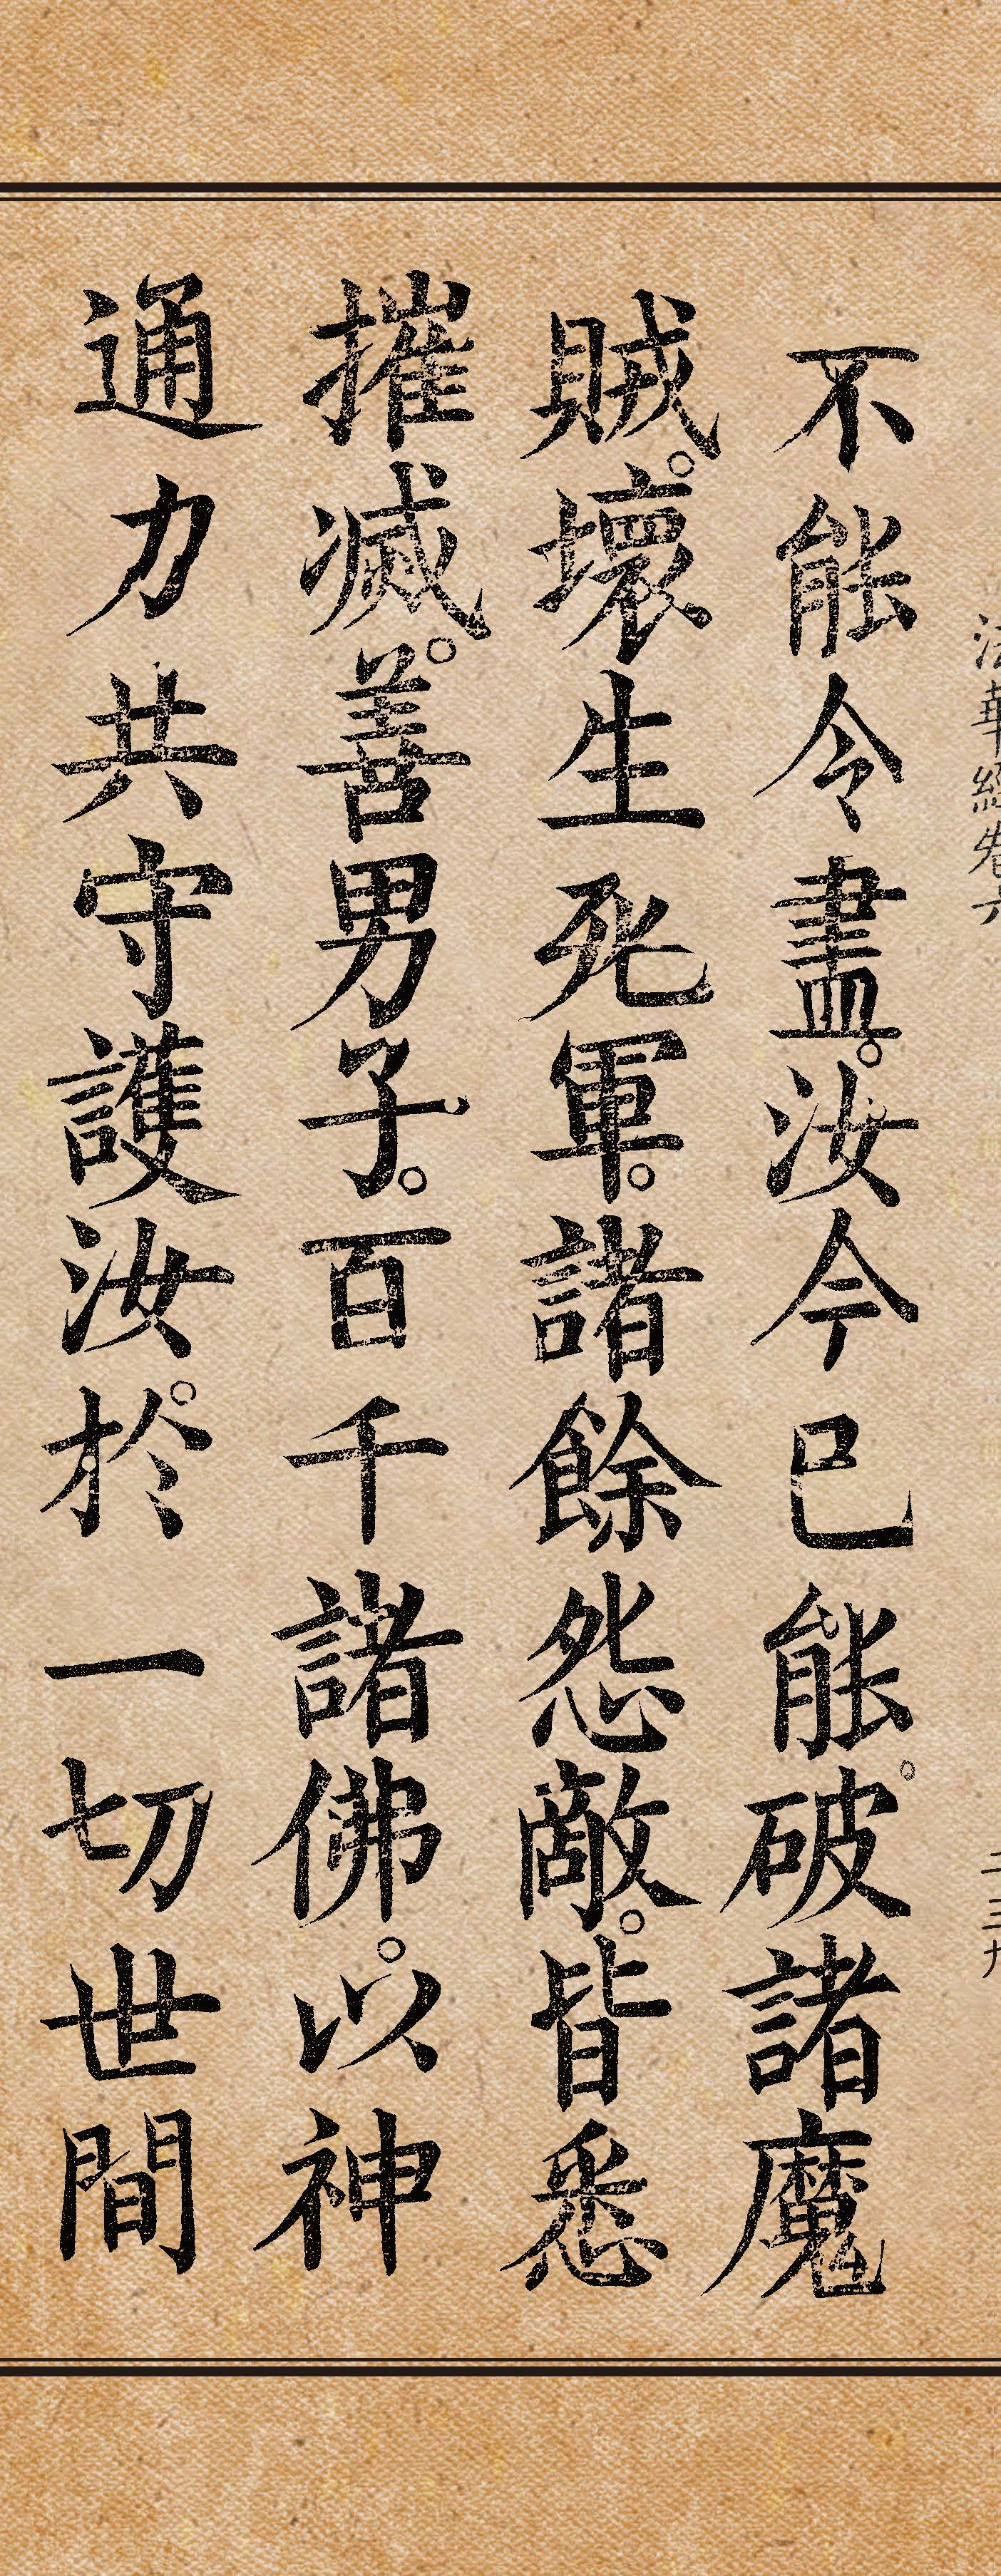 法華經卷六
二三九
不能令盡。汝今已能。破諸魔
賊。壞生死軍。諸餘怨敵。皆悉
摧滅。善男子。百千諸佛。以神
通力共守護汝。於一切世間